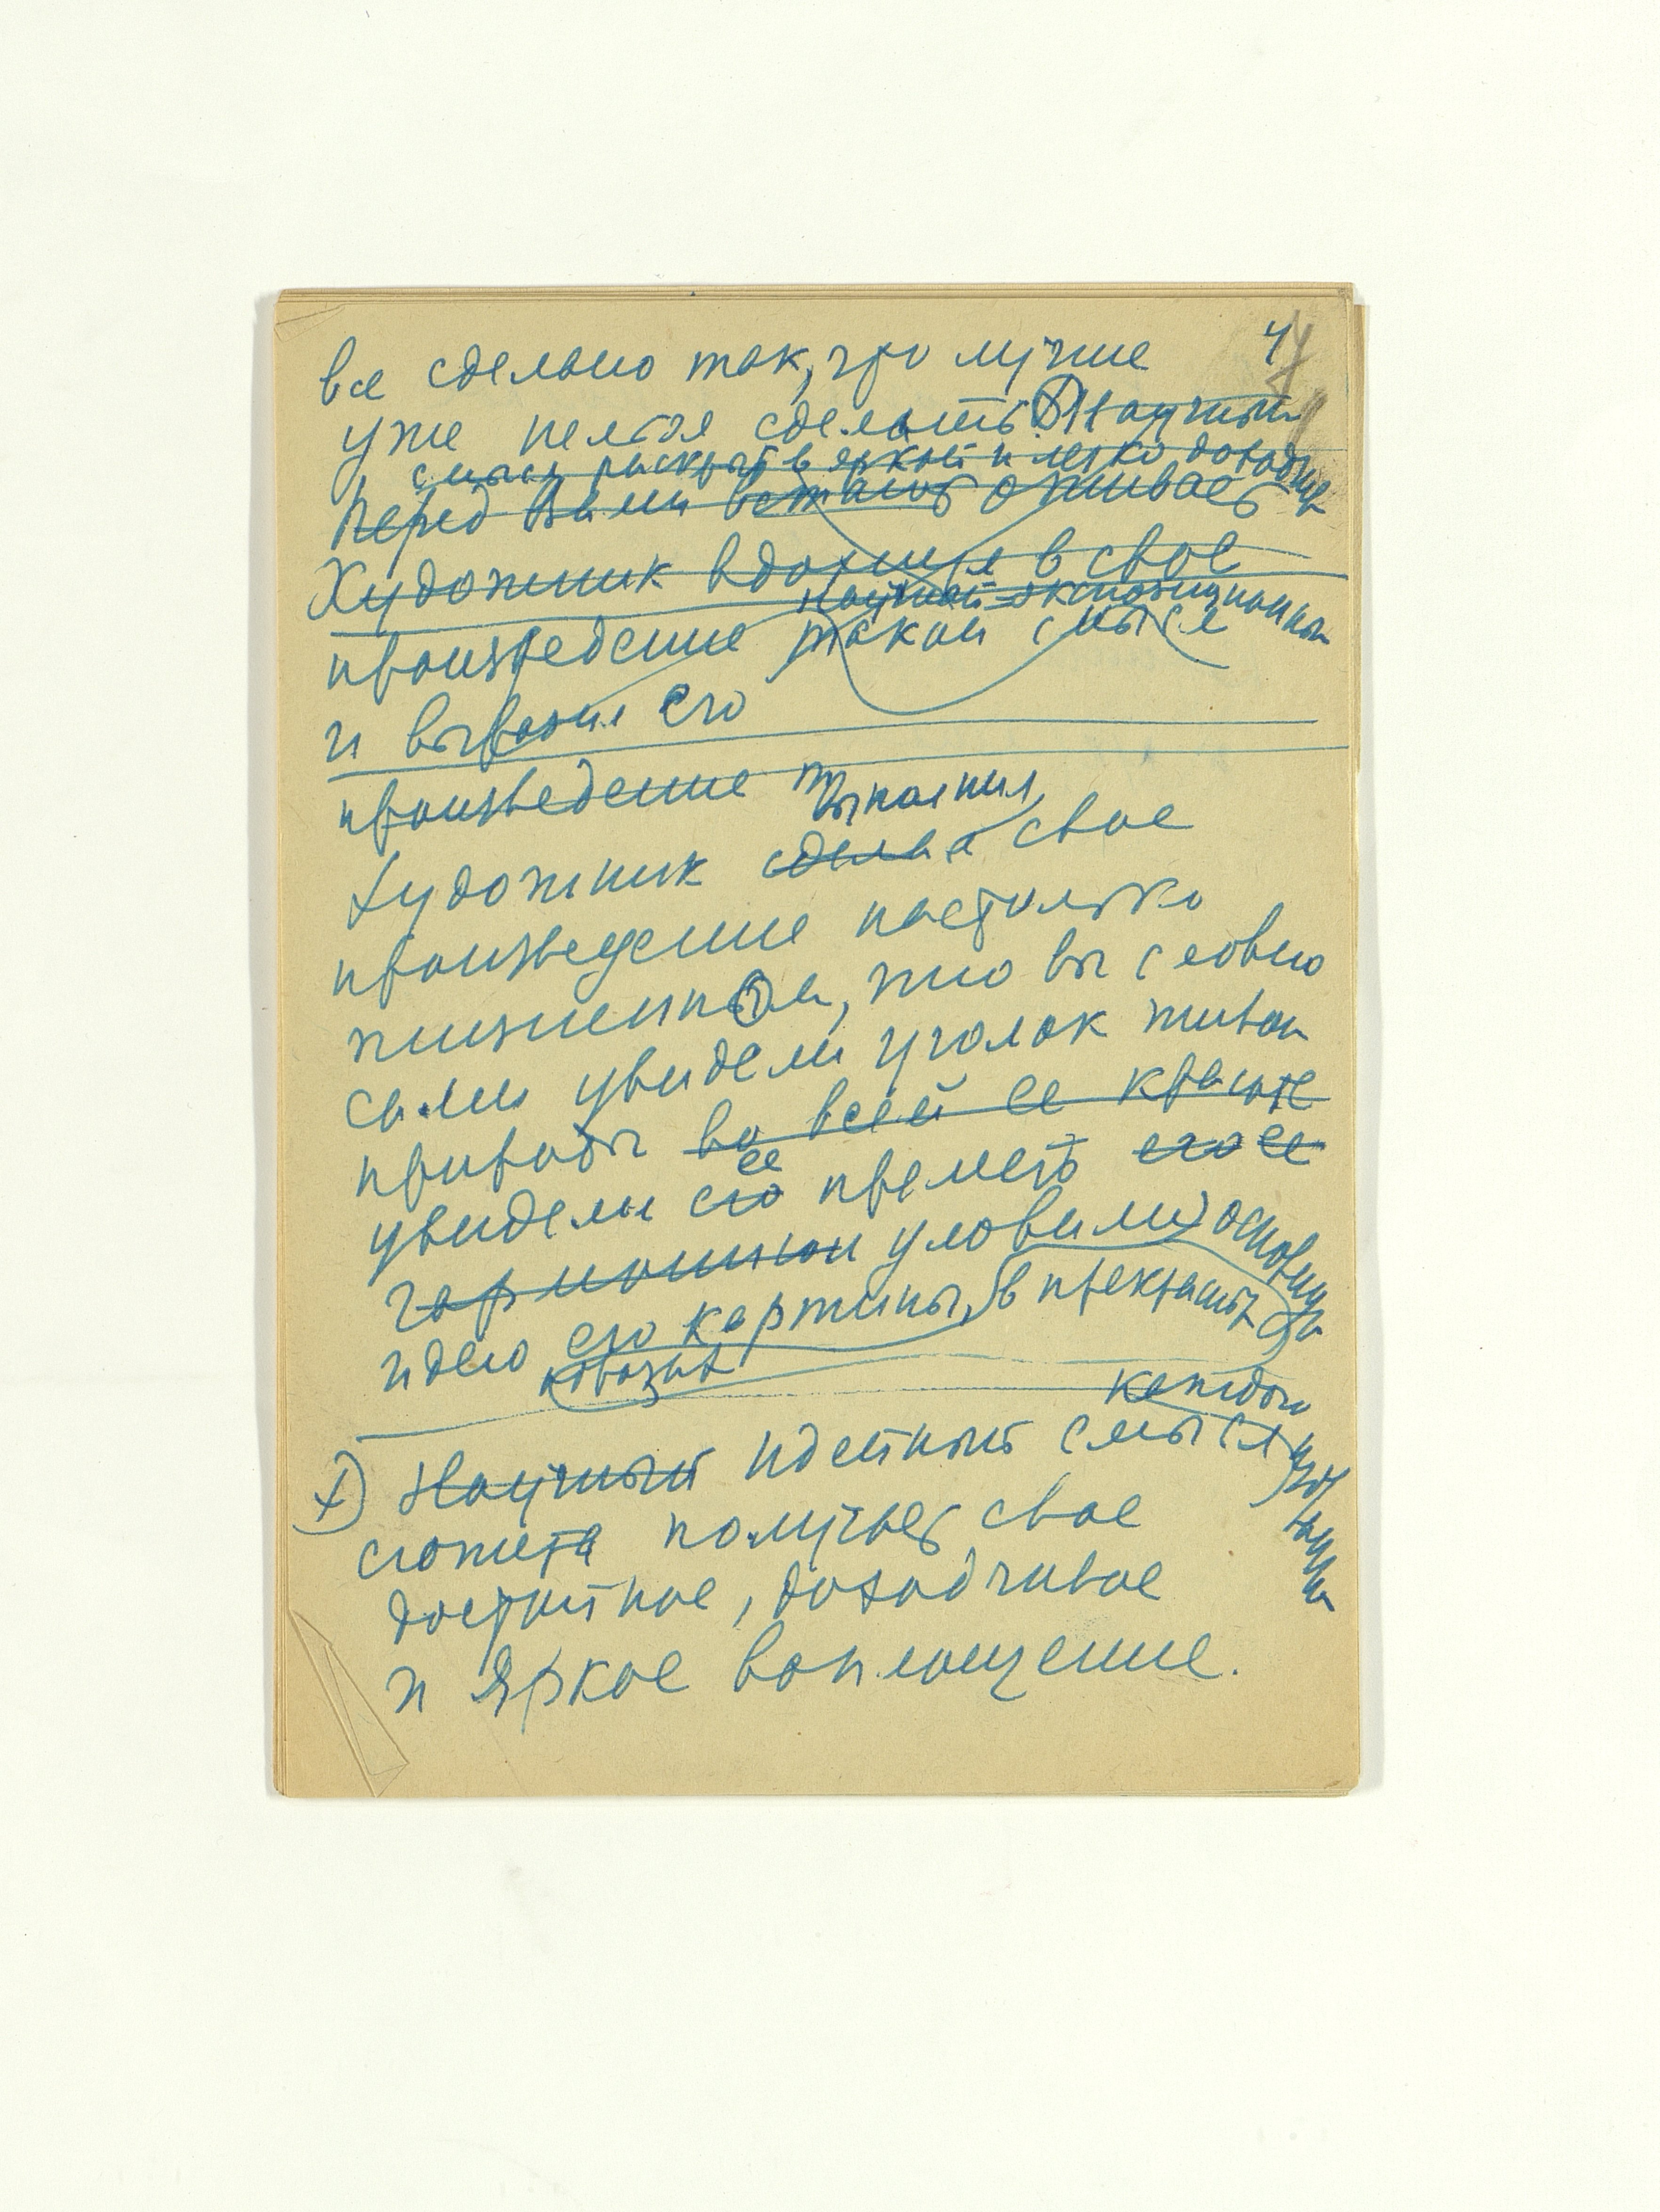 4
все сделано так, что лучше
уже нельзя сделать ⊗ Научный
смысл раскрыт в яркой и легко доходчив
Перед Вами встают оживает
Художник вдохнул в свое
научной экспозиционный
произведение такой смысл
и выразил его
произведение
выполнил
Художник сделал свое
произведение настолько
жизненно, что вы словно
сами увидели уголок живой
природы во всей ее красоте
увидели его ее прелесть его ее
гармонии уловили основную
идею его картины, в прекрасных
образах
каждого
х) Научный идейный смысл
сюжета получает свое
достойное, доходчивое
и яркое воплощение.